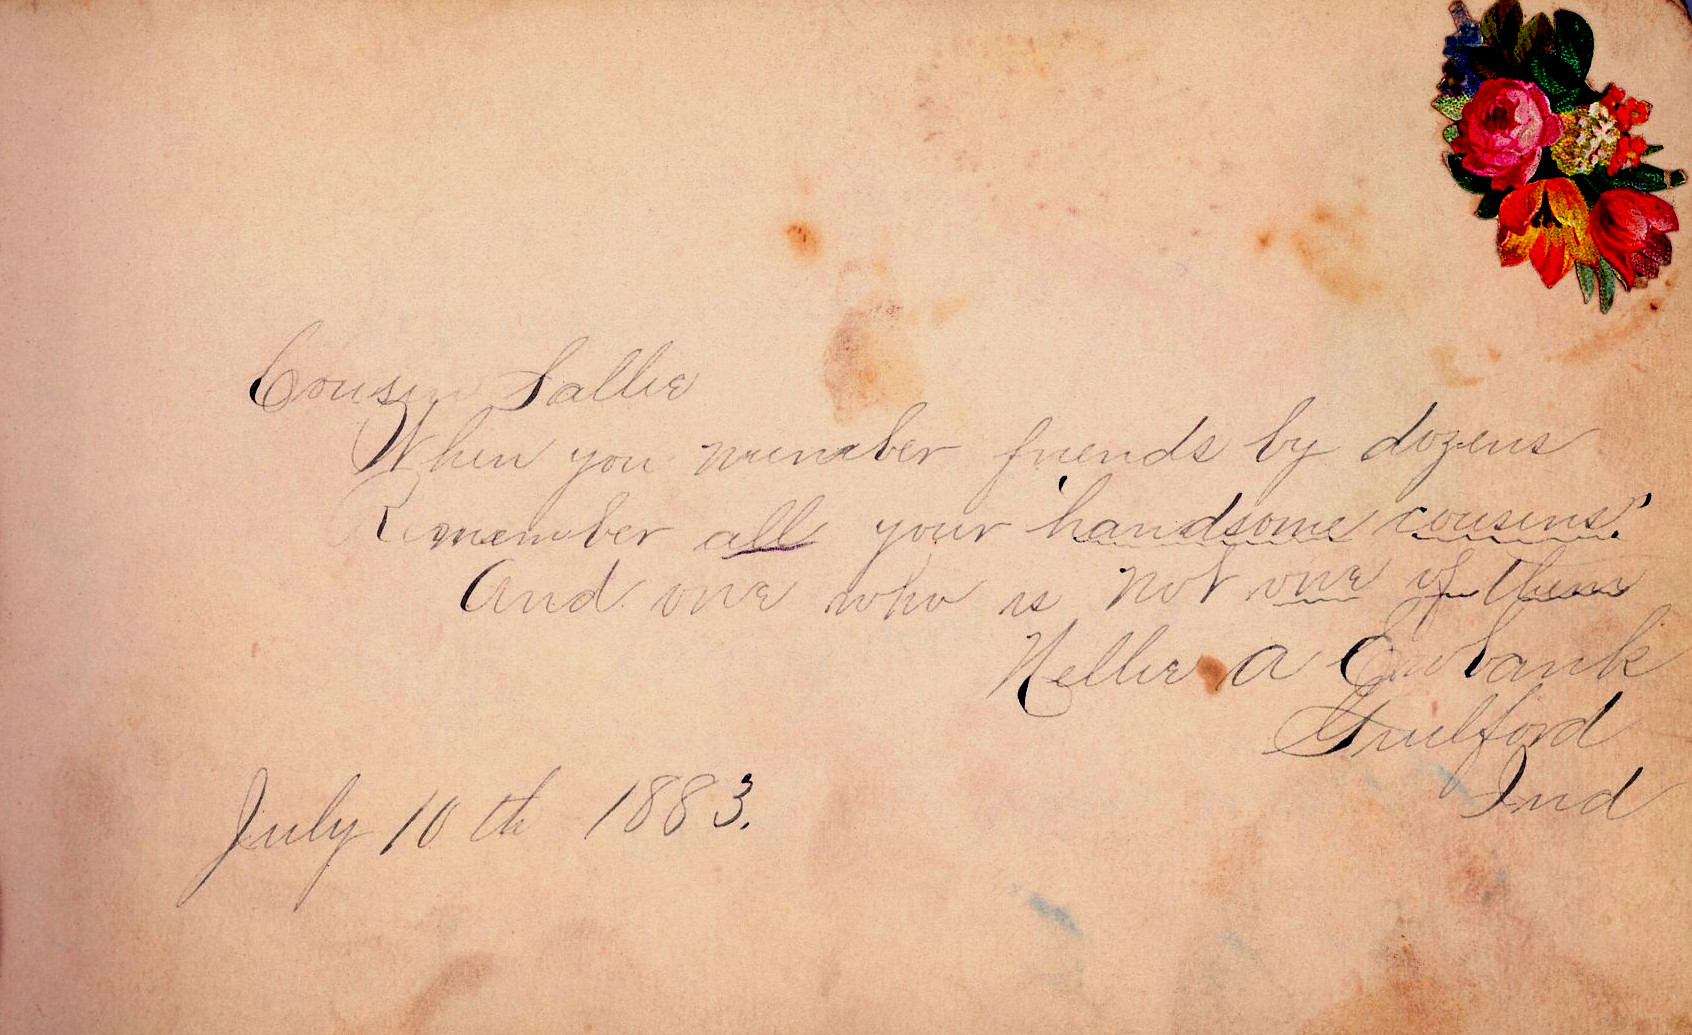 Cousin Sallie
When you number friends by dozens
Remember all your "handsome cousins"
And one who is not one of them
Nellie A Ewbank
Guilford
Ind
July 10th 1883.